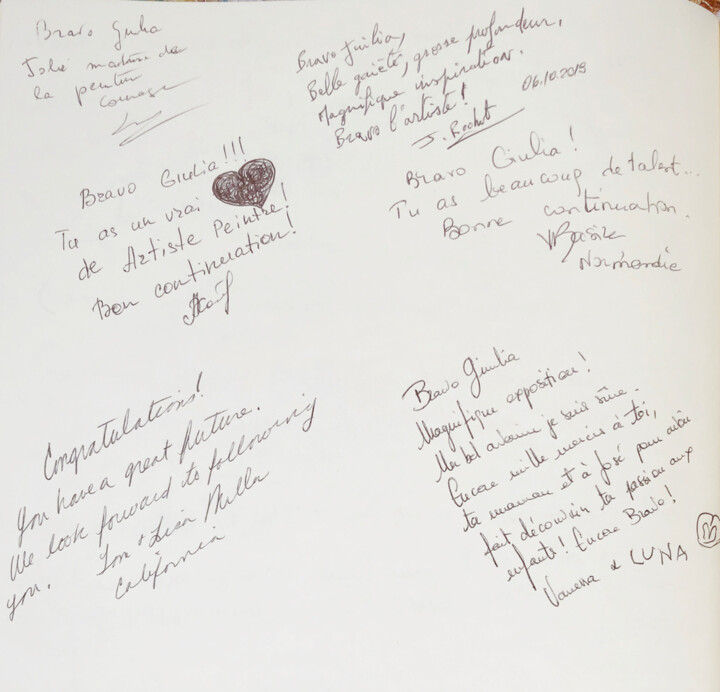 Bravo Giulia
Jolie maitrise de
la peinture
courage
Bravo Giulia,
Belle gaieté, grosse profondeur,
Magnifique inspiration.
Bravo l'artiste!
06.10.2019
J. Rochut
Bravo Giulia!!!
Tu as un vrai
de Artiste Peintre!
Bon continuation!
Bravo Giulia!
Tu as beaucoup de talent...
Bonne continuation.
Normandie
Congratulations!
You have a great future.
We look forward to following
you. Tom & Lisa Miller
California
Bravo Giulia
Magnifique exposition!
Un bel avenir je suis sûre.
Encore mille mercis à toi,
ta maman et à José pour avoir
fait découvrir ta passion aux
enfants! Encore Bravo!
Vanessa & LUNA